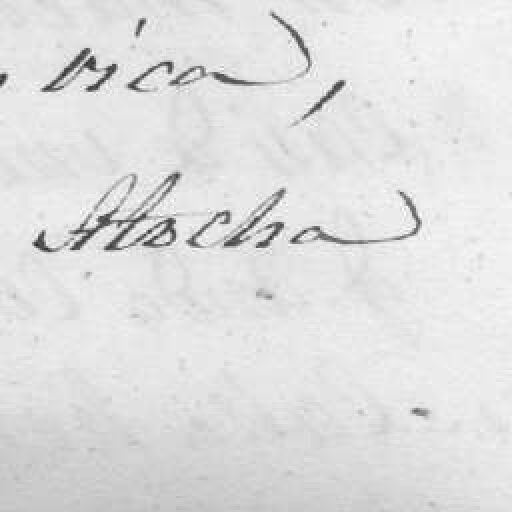 vica,
Atocha